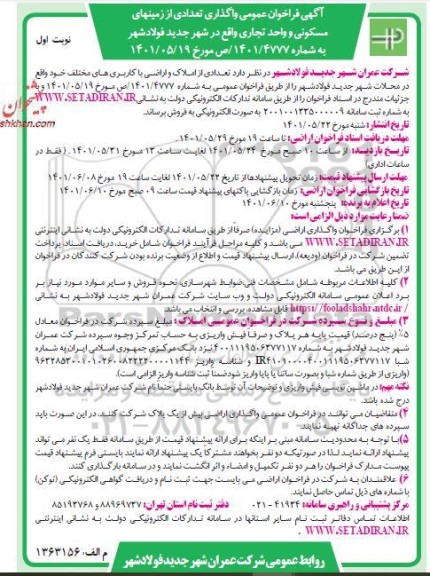 آگهی فراخوان عمومی واگذاری تعدادی از زمینهای
مسکونی و واحد تجاری واقع در شهر جدید فولادشهر
به شماره ۱۴۰۱/۴۷۷۷/ص مورخ ۱۴۰۱/۰۵/۱۹
نوبت اول
شرکت عمران شهر جدید فولادشهر در نظر دارد تعدادی از املاک و اراضی با کاربری های مختلف خود واقع
در محلات شهر جدید فولادشهر را از طریق فراخوان عمومی به شماره ۱۴۰۱/۴۷۷۷/ص مورخ ۱۴۰۱/۰۵/۱۹ و با
جزئیات مندرج در اسناد فراخوان را از طریق سامانه تدارکات الکترونیکی دولت به نشانی WWW.SETADIRAN.IR
به شماره ثبت سامانه به صورت الکترونیکی به فروش برساند.
تاریخ انتشار: شنبه مورخ ۱۴۰۱/۰۵/۲۲
مهلت دریافت اسناد فراخوان اراضی: تا ساعت ۱۹ مورخ ۱۴۰۱/۰۵/۲۹
تاریخ بازدید: از ساعت ۱۰ صبح مورخ ۱۴۰۱/۰۵/۲۴ لغایت ساعت ۱۳ مورخ ۱۴۰۱/۰۵/۳۱ (فقط در
ساعات اداری)
مهلت ارسال پیشنهاد قیمت: زمان تحویل پیشنهادها از تاریخ ۱۴۰۱/۰۵/۲۲ لغایت ساعت ۱۹ مورخ ۱۴۰۱/۰۶/۰۸
تاریخ بازگشایی فراخوان اراضی: زمان بازگشایی پاکتهای پیشنهاد قیمت ساعت ۰۹ صبح مورخ ۱۴۰۱/۰۶/۱۰
تاریخ اعلام به برنده: پنجشنبه مورخ ۱۴۰۱/۰۶/۱۰
ضمنا رعایت موارد ذیل الزامی است:
۱) برگزاری فراخوان واگذاری اراضی (مزایده) صرفا از طریق سامانه تدارکات الکترونیکی دولت به نشانی اینترنتی
WWW.SETADIRAN.IR می باشد و کلیه مراحل فرآیند فراخوان شامل خرید، دریافت اسناد، پرداخت
تضمین شرکت در فراخوان (ودیعه)، ارسال پیشنهاد قیمت و اطلاع از وضعیت برنده بودن شرکت کنندگان در فراخوان
از این طریق می باشد.
۲) کلیه اطلاعات مربوطه شامل مشخصات فنی، ضوابط شهرسازی، نحوه فروش و سایر موارد مورد نیاز بر
برد اعلان عمومی سامانه الکترونیکی دولت و وب سایت شرکت عمران شهر جدید فولادشهر به نشانی
https://fooladshahr.ntdc.ir/ قابل مشاهده، بررسی و انتخاب می باشد.
۳) مبلغ و نوع سپرده شرکت در فراخوان عمومی املاک: مبلغ سپرده شرکت در فراخوان معادل
۵٪ (پنج درصد) قیمت پایه هر پلاک و صرفا فیش واریزی به حساب تمرکز وجوه سپرده شرکت عمران
شهر جدید فولادشهر به شماره نزد بانک مرکزی جمهوری اسلامی ایران به شماره
شبا و شناسه واریز
(واریزی از طریق شماره شبا و بصورت ساتنا یا پایا واریز شود ضمنا ثبت شناسه واریز الزامی است).
نکته مهم: در ماشین نویسی فیش واریزی و توضیحات آن توسط بانک بایستی حتما نام شرکت عمران شهر جدید فولادشهر
درج شده باشد.
۴) متقاضیان می توانند در فراخوان عمومی واگذاری اراضی پیش از یک پلاک شرکت کنند. در این صورت باید
سپرده های جداگانه تهیه نمایند.
۵) با توجه به محدودیت سامانه مبنی بر اینکه برای ارائه پیشنهاد قیمت از طریق سامانه فقط یک نفر می تواند
پیشنهاد ارائه نماید لذا در صورتیکه دو نفر بخواهند مشترکا یک پیشنهاد ارائه نمایند بایستی فرم پیشنهاد قیمت
پیوست مدارک فراخوان را هر دو نفر تکمیل و امضاء و اثر انگشت نمایند و در سامانه بارگذاری کنند.
۶) علاقمندان به شرکت در فراخوان اراضی می بایست جهت ثبت نام و دریافت گواهی الکترونیکی (توکن)
با شماره های ذیل تماس حاصل نمایند.
مرکز پشتیبانی و راهبری سامانه: ۴۱۹۳۴ - ۰۲۱ دفتر ثبت نام استان تهران: ۸۸۹۶۹۷۳۷ و ۸۵۱۹۳۷۶۸
اطلاعات تماس دفاتر ثبت نام سایر استانها در سامانه تدارکات الکترونیکی دولت به نشانی اینترنتی
WWW.SETADIRAN.IR .
م الف: ۱۳۶۳۱۵۶
روابط عمومی شرکت عمران شهر جدید فولادشهر